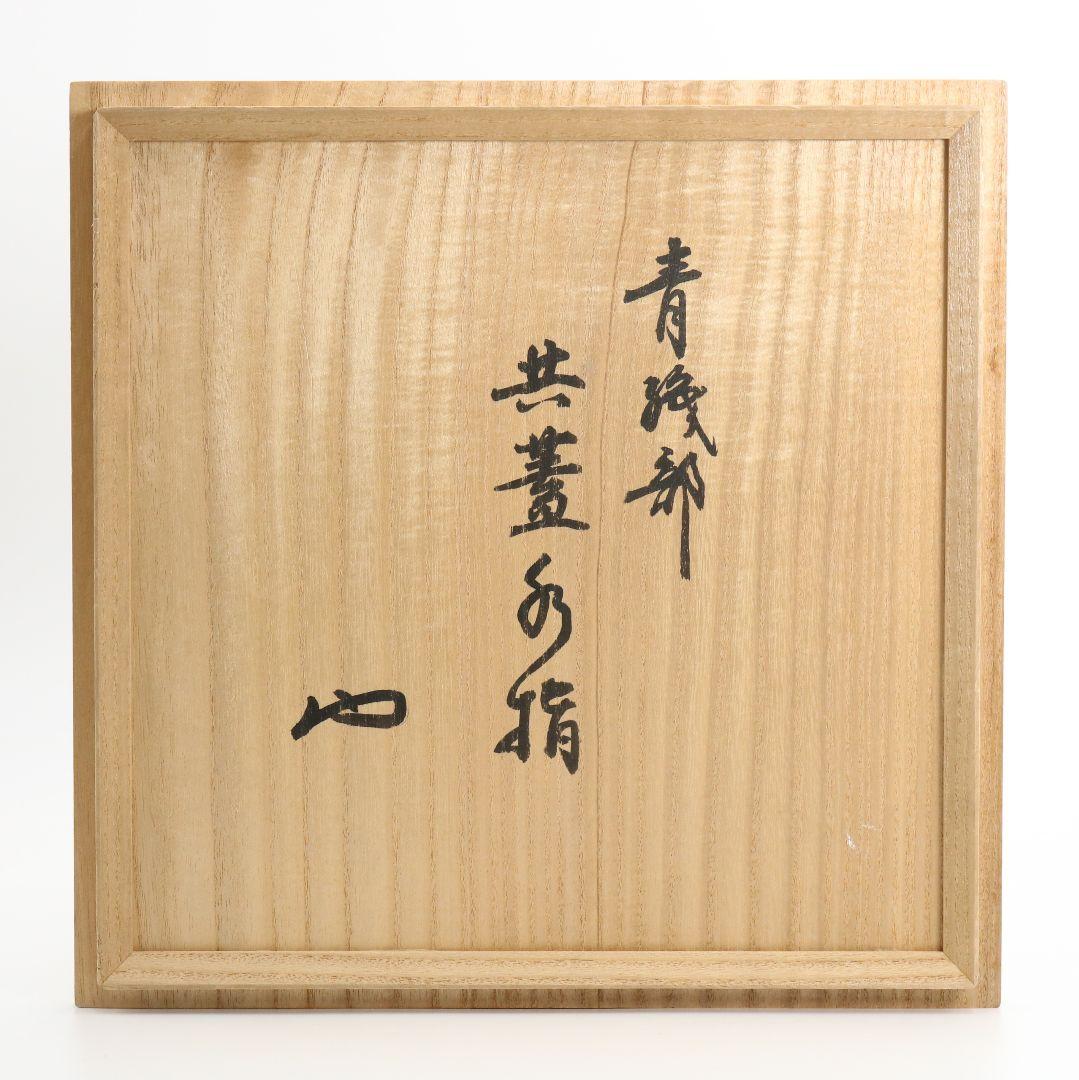 青織部
共蓋水指